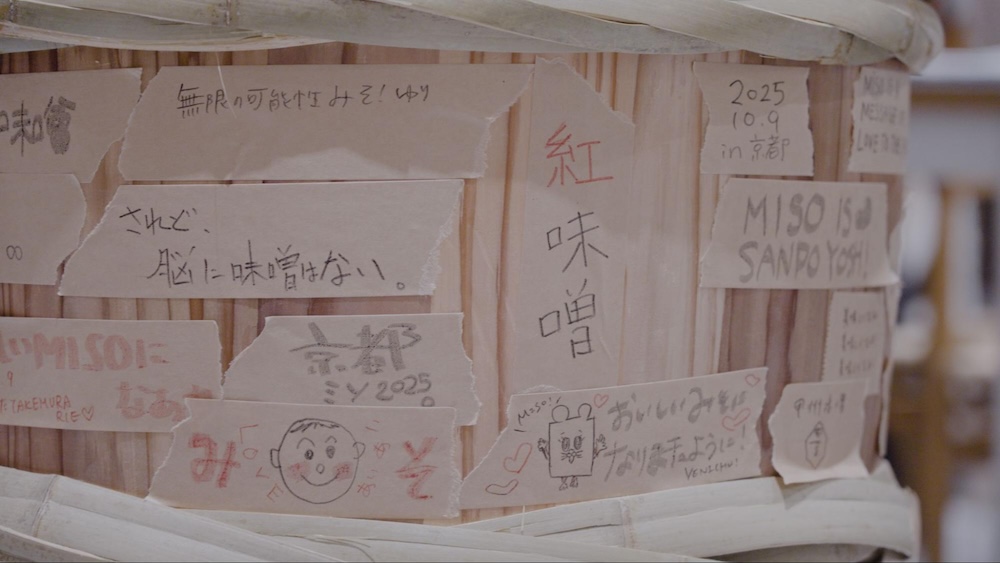 味噌
無限の可能性みそ！ゆり
されど、
脳に味噌はない。
∞
MISOに
9
TAKEMURA
RIE♡
京都
ミソ2025
み
そ
紅
味
噌
2025
10.9
in 京都
MISO IS
SANPO YOSHI
MISO!
おいしいみそに
なりますように！